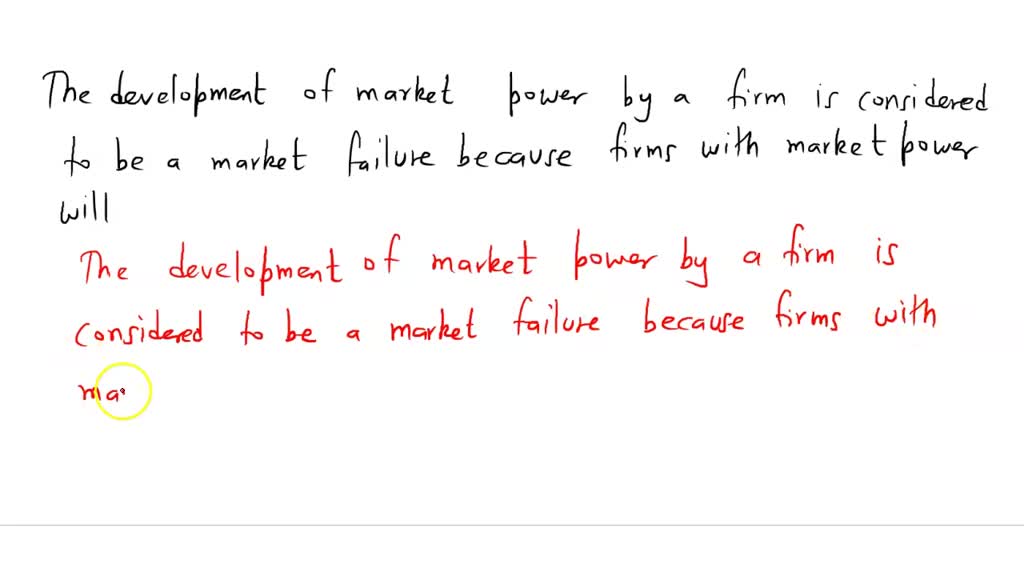 The development of market power by a firm is considered
to be a market failure because firms with market power
will
The development of market power by a firm is
considered to be a market failure because firms with
ma